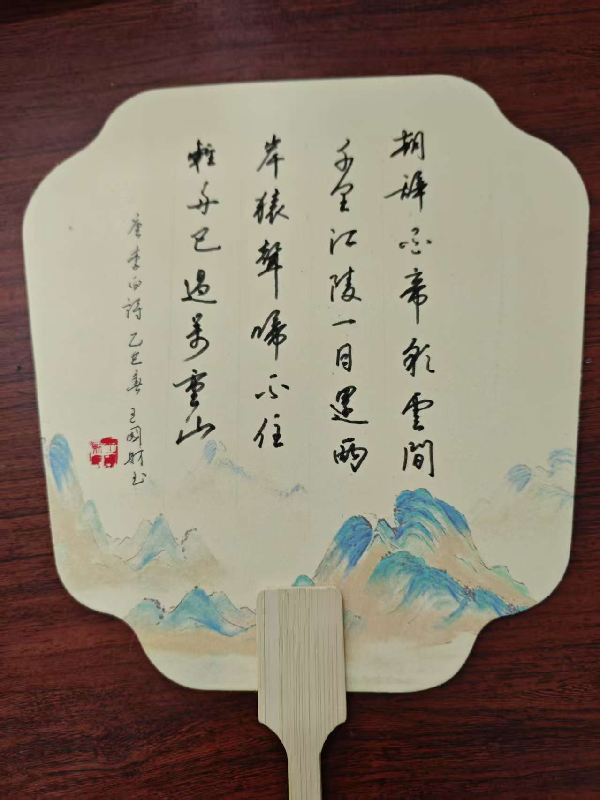 朝辞白帝彩雲間
千里江陵一日還兩
岸猿聲啼不住
輕舟已過萬重山
唐李白詩乙巳春王國財书